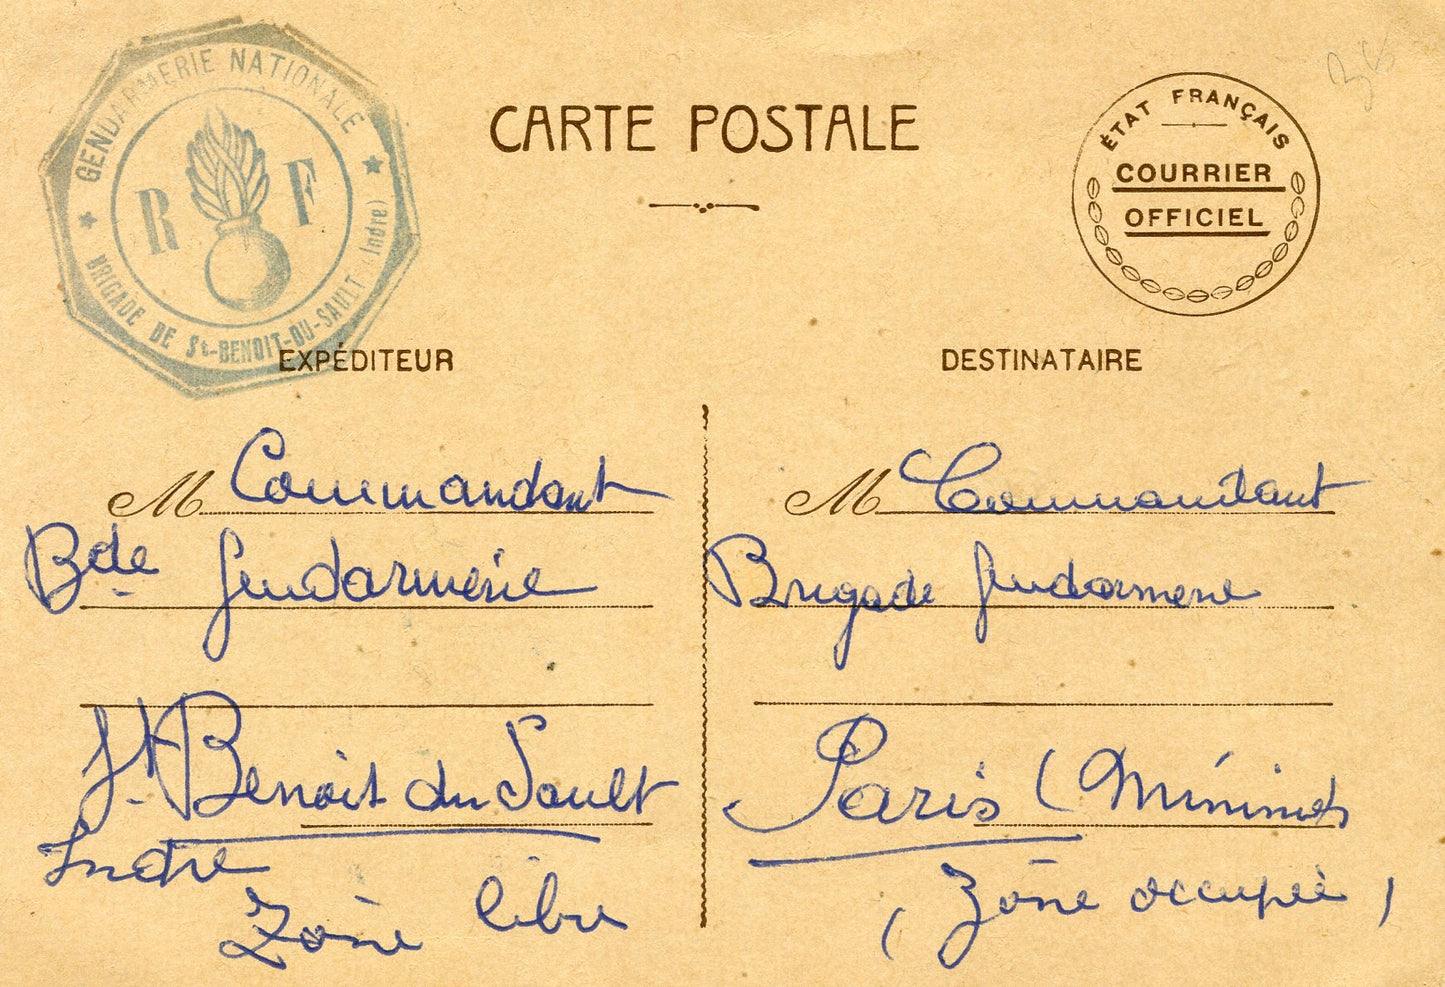 GENDARMERIE NATIONALE
R F
BRIGADE DE St-BENOIT-DU-SAULT (Indre)
CARTE POSTALE
ÉTAT FRANÇAIS
COURRIER
OFFICIEL
EXPÉDITEUR
M Commandant
Bde Gendarmerie
St. Benoit du Sault
Indre
Zône libre
DESTINATAIRE
M Commandant
Brigade Gendarmerie
Paris (Minimes
(Zône occupée)